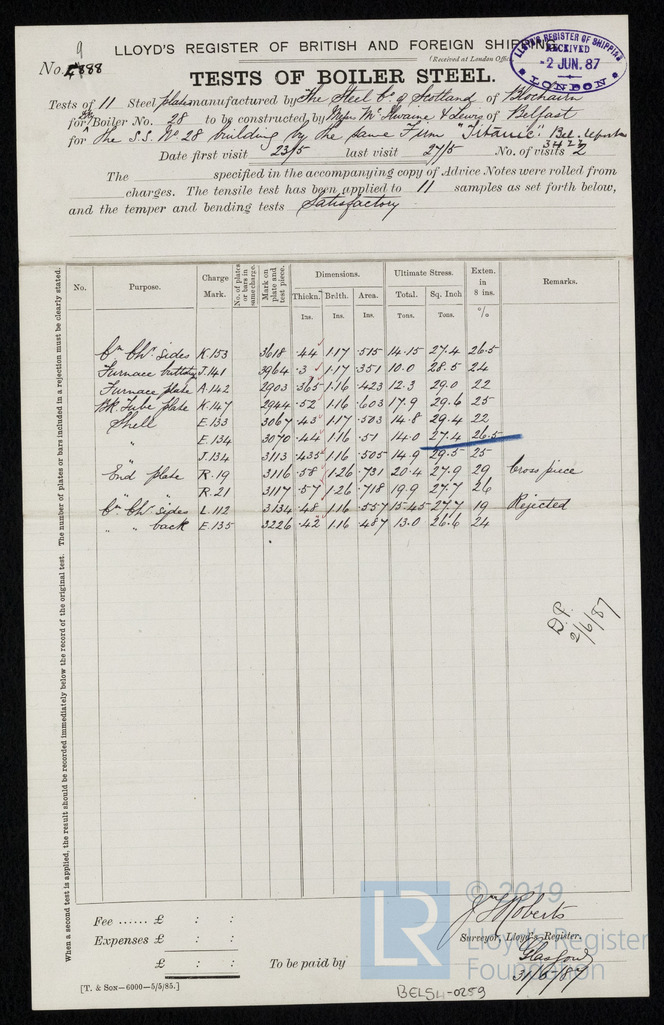 9
No. 5888
LLOYD'S REGISTER OF BRITISH AND FOREIGN SHIPPING.
(Received at London Office
LLOYD'S REGISTER OF SHIPPING
RECEIVED
-2 JUN. 87
LONDON
TESTS OF BOILER STEEL.
Tests of 11 Steel plates manufactured by The Steel Co. of Scotland of Blochairn
for Boiler No. 28 to be constructed by Messrs McIlwaine & Lewis of Belfast
for the S.S. No 28 building by the same Firm "Titanic". Bel. Report
3427
Date first visit 23/5 last visit 27/5 No. of visits 2
The specified in the accompanying copy of Advice Notes were rolled from
charges. The tensile test has been applied to 11 samples as set forth below,
and the temper and bending tests Satisfactory
When a second test is applied, the result should be recorded immediately below the record of the original test. The number of plates or bars included in a rejection must be clearly stated.
No. Purpose. Charge Mark. No. of plates or bars in same charge. Mark on plate and test piece. Dimensions. Ultimate Stress. Exten. in 8 ins. Remarks.
Thickn. Brdth. Area. Total. Sq. Inch
Ins. Ins. Ins. Tons. Tons. %
Cn Chr sides K.153 3618 .44 1.17 .515 14.15 27.4 26.5
Furnace J.141 3964 .3 1.17 .351 10.0 28.5 24
Furnace plate A.142 2903 .365 1.16 .423 12.3 29.0 22
Bk Tube plate K.147 2944 .52 1.16 .603 17.9 29.6 25
Shell E.133 3067 .43 1.17 .503 14.8 29.4 22
" E.134 3070 .44 1.16 .51 14.0 27.4 26.5
" J.134 3113 .435 1.16 .505 14.9 29.5 25
End plate R.19 3116 .58 1.26 .731 20.4 27.9 29 Cross piece
" " R.21 3117 .57 1.26 .718 19.9 27.7 26
Cn Chr sides L.112 3134 .48 1.16 .557 15.45 27.7 19 Rejected
" " back E.135 3226 .42 1.16 .487 13.0 26.6 24
D.P.
2/6/87
Fee ...... £ : :
Expenses £ : :
£ : :
To be paid by
Roberts
Surveyor, Lloyd's Register.
Glasgow
31/5/87
[T. & Son—6000—5/5/85.]
BELS4-0259
© 2019
LR
Lloyd's Register
Foundation